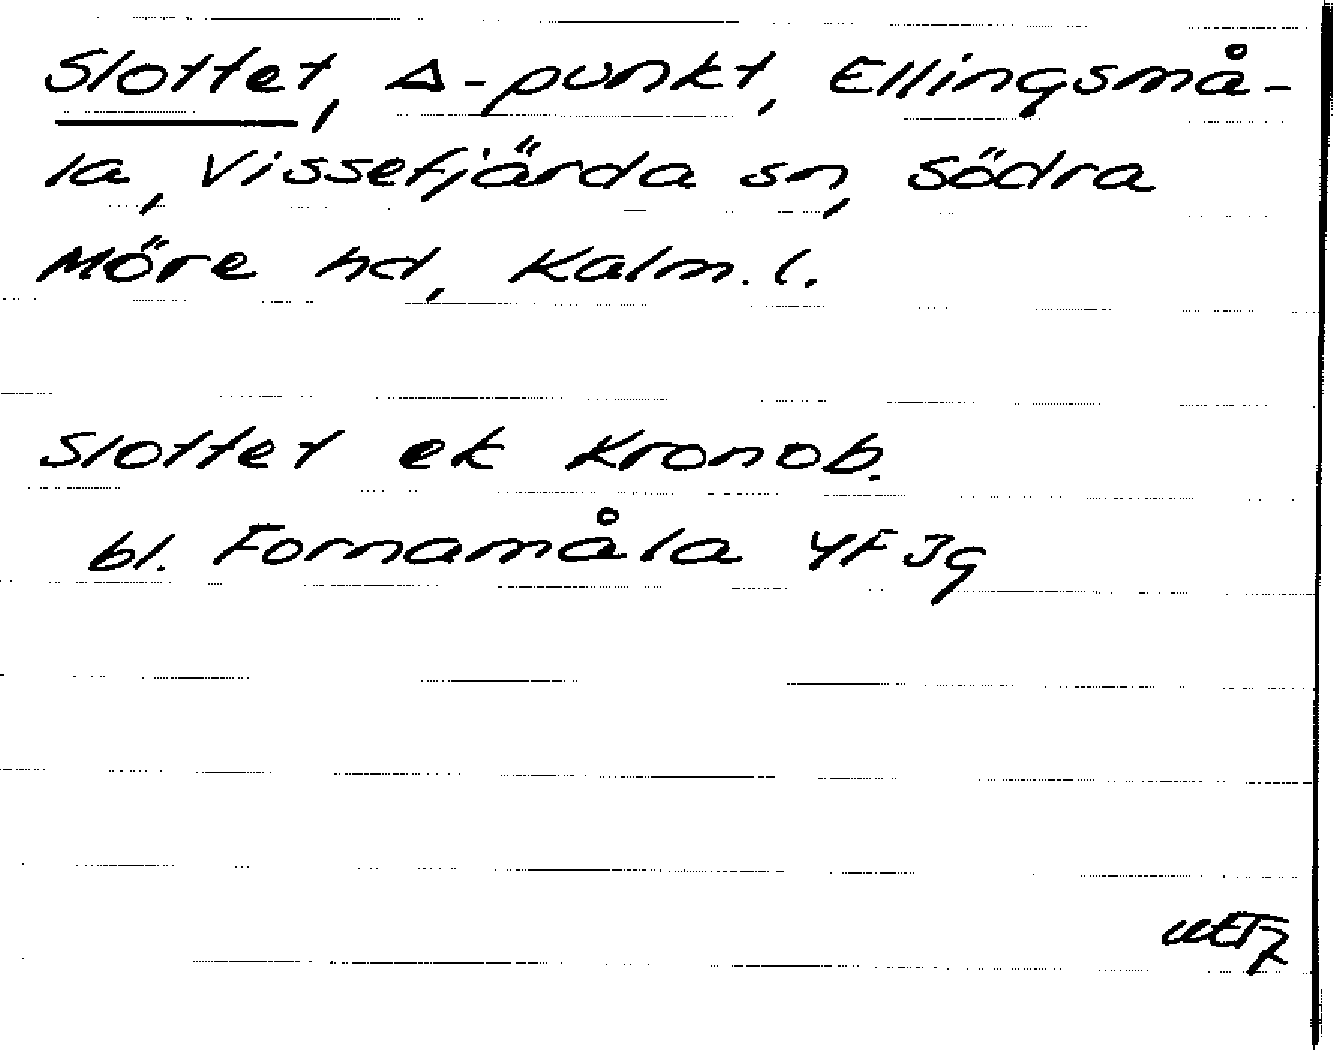 Slottet, Δ-punkt, Ellingsmå-
la, Vissefjärda sn, Södra
Möre hd, Kalm. l.
Slottet ek Kronob.
bl. Fornamåla 4F Jg